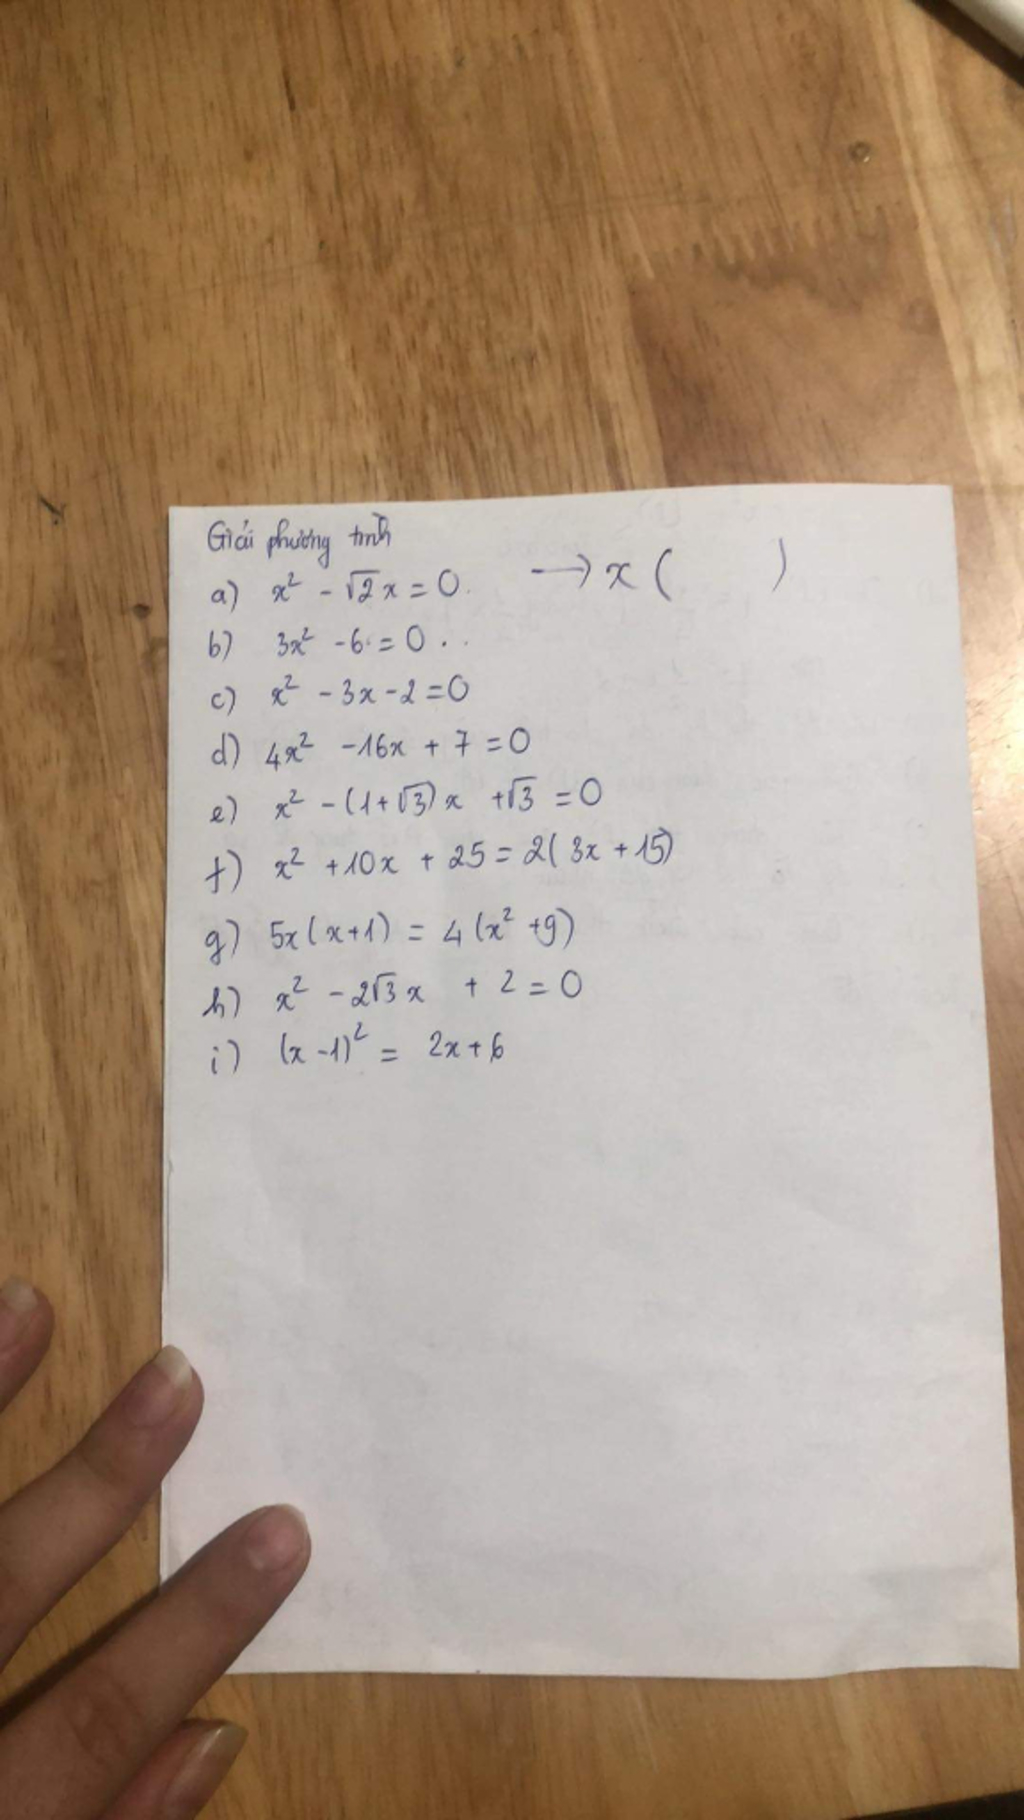 Giải phương trình
a) x² - √2 x = 0. → x ( )
b) 3x² - 6 = 0 . .
c) x² - 3x - 2 = 0
d) 4x² - 16x + 7 = 0
e) x² - (1 + √3) x + √3 = 0
f) x² + 10x + 25 = 2( 3x + 15)
g) 5x ( x + 1) = 4 (x² + 9)
h) x² - 2√3 x + 2 = 0
i) (x - 1)² = 2x + 6